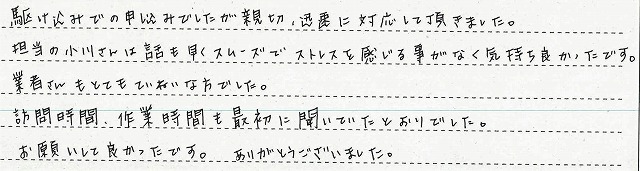 駆け込みでの申込みでしたが親切、迅速に対応して頂きました。
担当の小川さんは話も早くスムーズでストレスを感じる事がなく気持ち良かったです。
業者さんもとてもていねいな方でした。
訪問時間、作業時間も最初に聞いていたとおりでした。
お願いして良かったです。ありがとうございました。